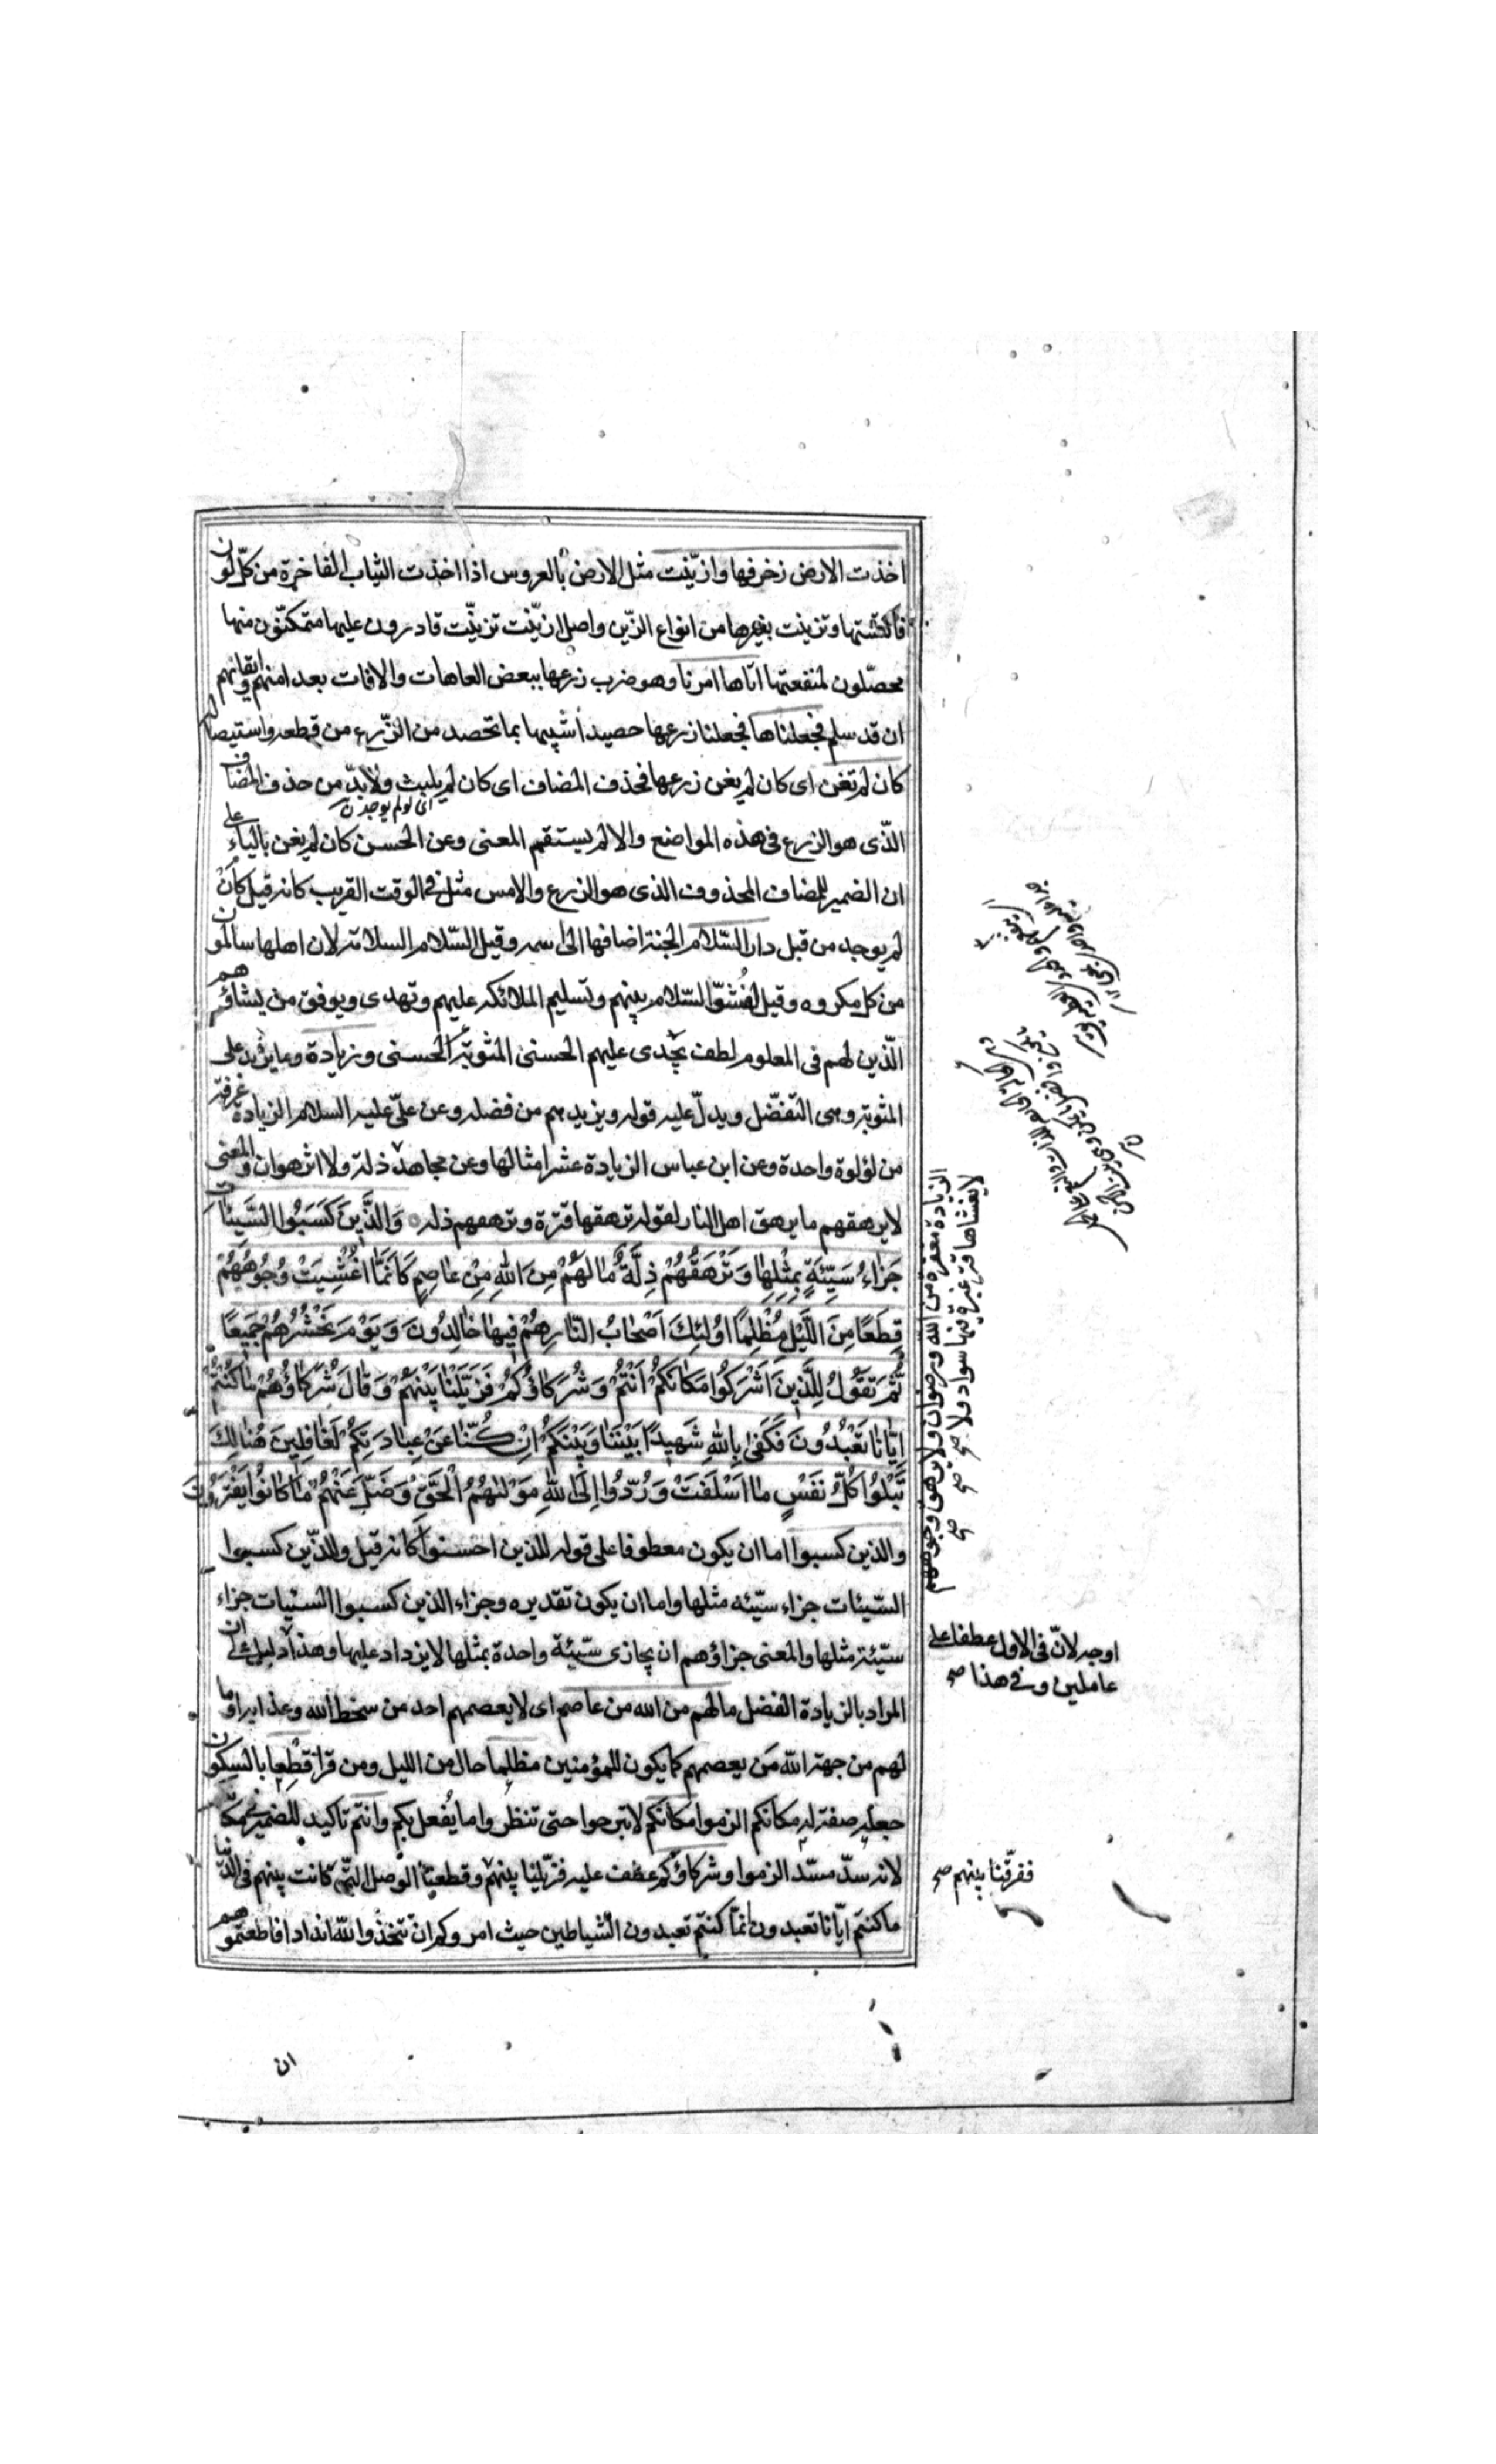 اخذت الارض زخرفها وازّيّنت مثل الارض بالعروس اذا اخذت الثياب الفاخرة من كلّ لون
فاكتستها وتزينت بغيرها من انواع الزّين واصل ازيّنت تزيّنت قادرون عليها متمكنّون منها
محصّلون لمنفعتها اتاها امرنا وهو ضرب زرعها ببعض العاهات والافات بعد امنهم وايقانهم
ان قد سلم فجعلناها فجعلنا زرعها حصيدا شبيها بما تحصد من الزّرع من قطعه واستيصاله
كان لم تغن اى كان لم يغن زرعها فحذف المضاف اى كان لم يلبث ولابدّ من حذف المضاف
اى لو لم يوجدن
الّذى هو الزرع فى هذه المواضع والا لم يستقم المعنى وعن الحسن كان لم يغن بالياء على
ان الضمير للمضاف المحذوف الذى هو الزرع والامس مثل فى الوقت القريب كانه قيل كأن
لم يوجد من قبل دار السّلام الجنة اضافها الى اسمه وقيل السّلام السلامة لان اهلها سالمون
من كل مكروه وقيل لفشوّ السّلام بينهم وتسليم الملائكه عليهم وتهدى ويوفق من يشاؤهم
الّذين لهم فى المعلوم لطف يجدى عليهم الحسنى المثوبة الحسنى وزيادة وما يزيد على
المثوبة وهى التفضّل ويدلّ عليه قوله ويزيدهم من فضله وعن علىّ عليه السلام الزيادة غرفة
من لؤلوة واحدة وعن ابن عباس الزيادة عشر امثالها وعن مجاهد ذلة ولا اثر هوان والمعنى
لا يرهقهم ما يرهق اهل النار لقوله ترهقها قترة وترهقهم ذله وَالَّذِينَ كَسَبُوا السَّيِّئاتِ
جَزاءُ سَيِّئَةٍ بِمِثْلِها وَتَرْهَقُهُمْ ذِلَّةٌ ما لَهُمْ مِنَ اللهِ مِنْ عاصِمٍ كَاَنَّمَا اُغْشِيَتْ وُجُوهُهُمْ
قِطَعًا مِنَ اللَّيْلِ مُظْلِمًا اُولئِكَ اَصْحابُ النّارِ هُمْ فِيها خالِدُونَ وَيَوْمَ نَحْشُرُهُمْ جَمِيعًا
ثُمَّ نَقُولُ لِلَّذِينَ اَشْرَكُوا مَكانَكُمْ اَنْتُمْ وَشُرَكاؤُكُمْ فَزَيَّلْنا بَيْنَهُمْ وَقالَ شُرَكاؤُهُمْ ما كُنْتُمْ
اِيّانا تَعْبُدُونَ فَكَفى بِاللهِ شَهِيدًا بَيْنَنا وَبَيْنَكُمْ اِنْ كُنّا عَنْ عِبادَتِكُمْ لَغافِلِينَ هُنالِكَ
تَبْلُوا كُلُّ نَفْسٍ ما اَسْلَفَتْ وَرُدّوُا اِلَى اللهِ مَوْلهُمُ الْحَقِّ وَضَلَّ عَنْهُمْ ما كانُوا يَفْتَرُونَ
والذين كسبوا اما ان يكون معطوفا على قوله للذين احسنوا كانه قيل وللذّين كسبوا
السّيئات جزاء سيّئه مثلها واما ان يكون تقديره وجزاء الذين كسبوا السيّئات جزاء
سيّئة مثلها والمعنى جزاؤهم ان يجازى سيّئة واحدة بمثلها لا يزداد عليها وهذا دليل على ان
المراد بالزيادة الفضل ما لهم من الله من عاصم اى لا يعصمهم احد من سخط الله وعذابه او ما
لهم من جهة الله من يعصمهم كما يكون للمؤمنين مظلما حال من الليل ومن قرا قطعا بالسكون
جعله صفة له مكانكم الزموا مكانكم لا تبرحوا حتى تنظروا ما يُفعل بكم وانتم تاكيد للضمير فى مكانكم
لانه سدّ مسّد الزموا وشركاؤكم عطف عليه فزيّلنا بينهم وقطعنا الوصل التّى كانت بينهم فى الدّنيا
ما كنتم ايّانا تعبدون انمّا كنتم تعبدون الشّياطين حيث امروكم ان تتخذوا لله اندادا فاطعتموهم
ان
الزيادة مغفرة من الله ورضوان ولا يرهق وجوههم
لا يغشاها قتر غبرة فيها سواد ولا صح
اوجه لانّ فى الاول عطفا على
عاملين وفى هذا صح
ففرّقنا بينهم صح